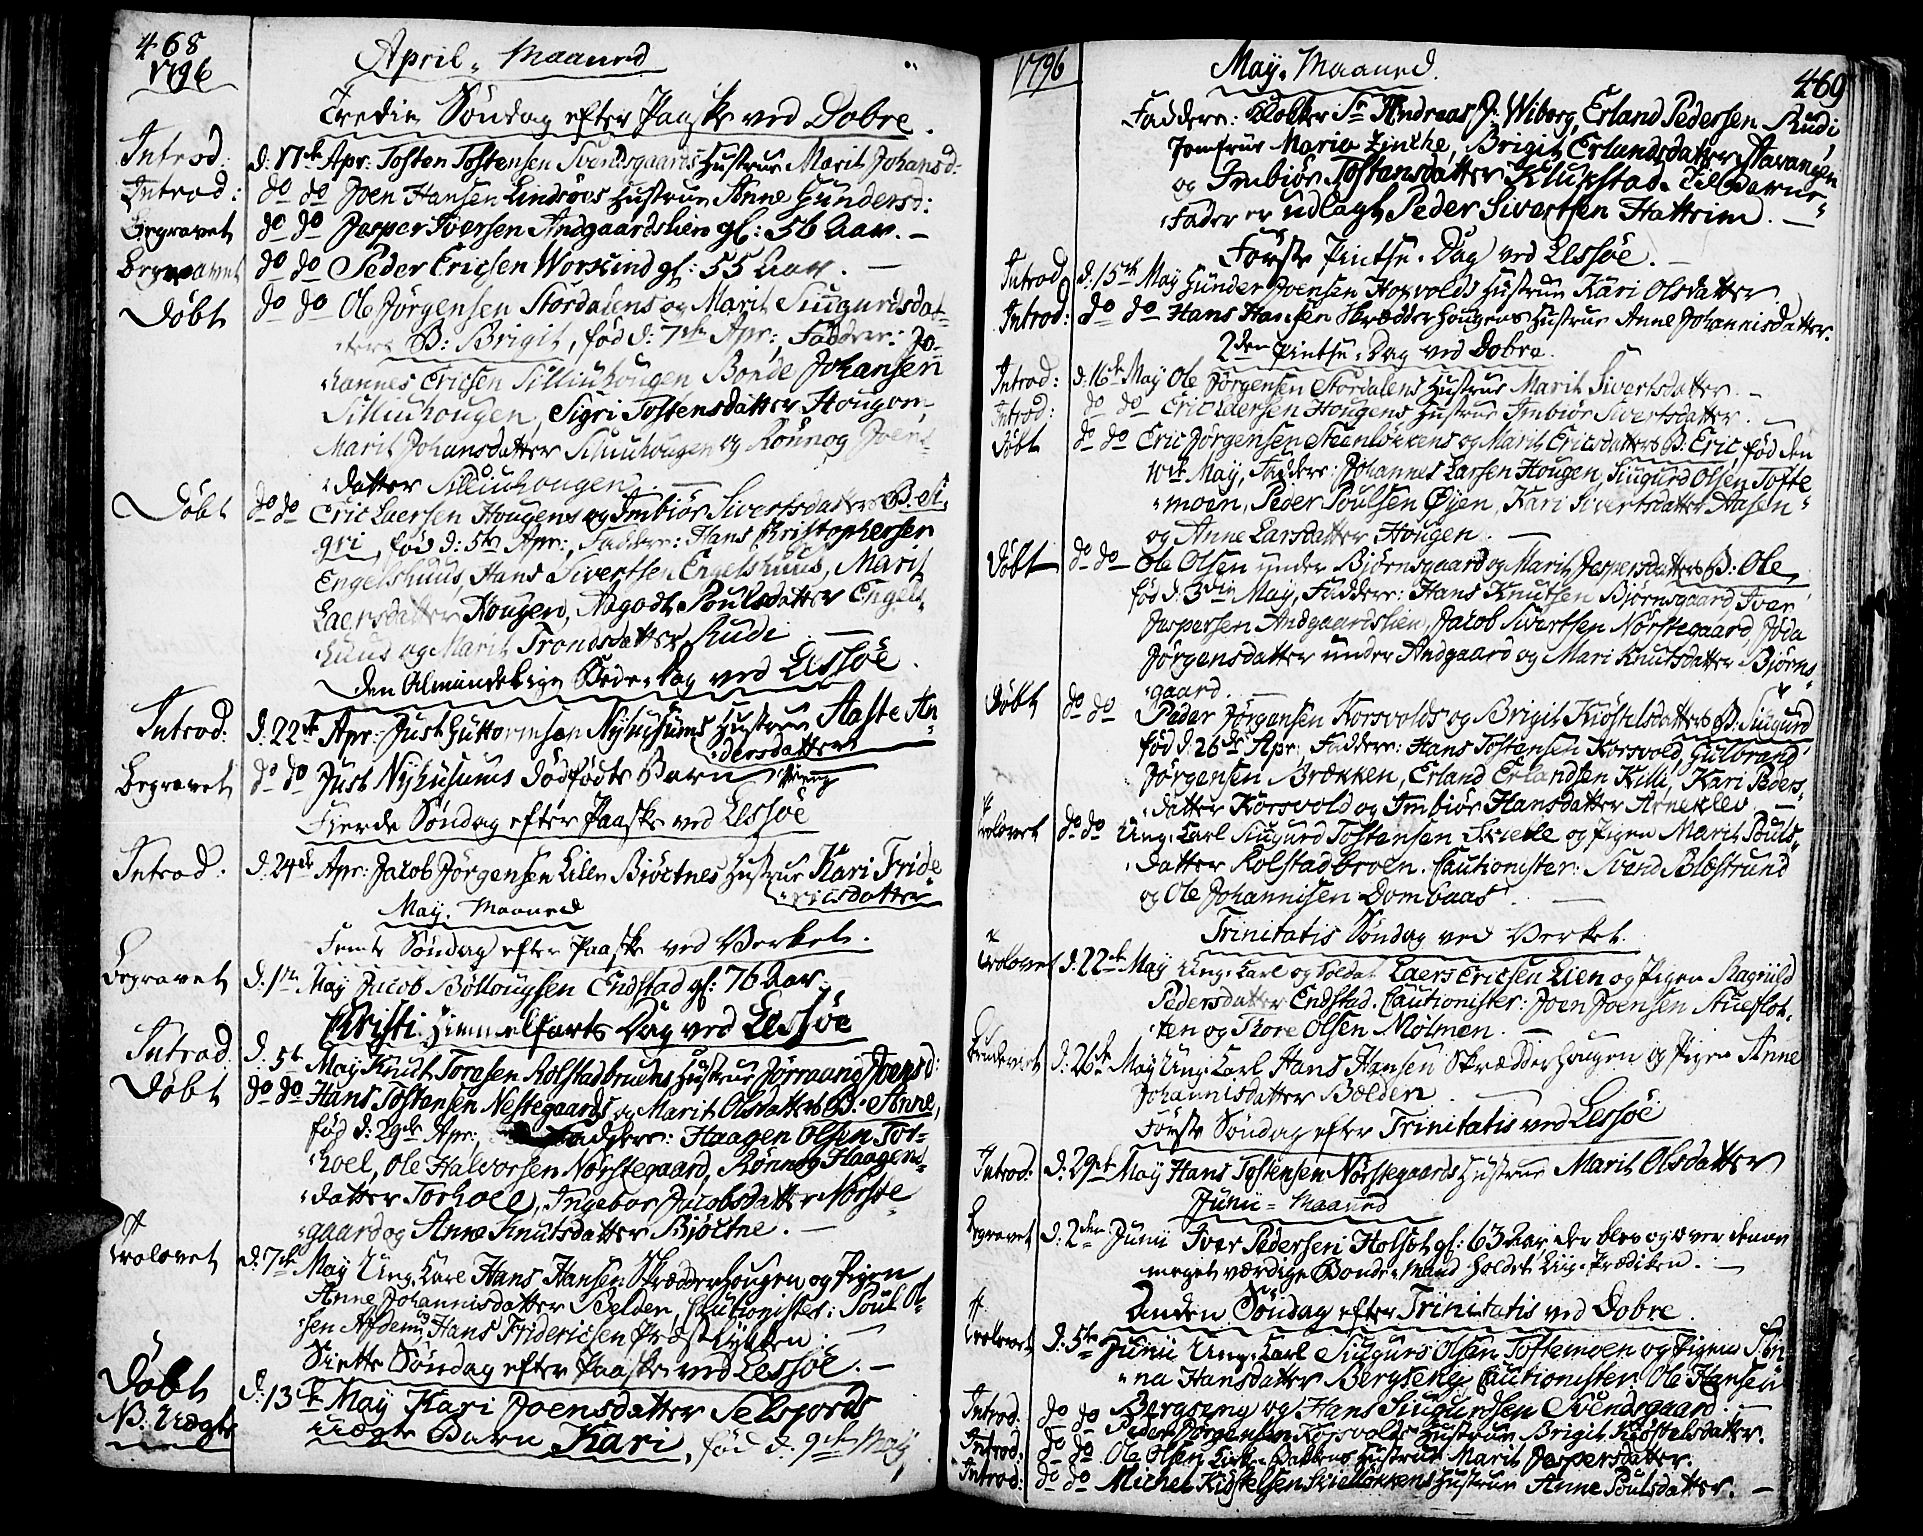 468
1796
April Maaned
Tredie Søndag efter Paaske ved Dobre.
Introd: d: 17de Apr: Tosten Tostensen Svendsgaards Hustrue Marit Johansd:
Introd: do do Joen Hansen Lindsøes Hustrue Anne Gundersd:
Begravet do do Jesper Iversen Andgaardslien gl: 56 Aar.
Begravet do do Peder Ericsen Workind gl: 55 Aar.
Døbt do do Ole Jørgensen Stordalens og Marit Siugurdsdat-
ters B: Brigit, fød d: 7de Apr: Faddere: Jo-
hannes Ericsen Silliuhougen Bonde Johansen
Silliuhougen, Sigri Tostensdatter Hougom,
Marit Johansdatter Silliuhougen og Rønnog Joens-
datter Silliuhougen.
Døbt do do Eric Laersen Hougens og Imbiør Sivertsdatters B: Si-
gri, fød d: 5te Apr:, Faddere: Hans Kristophersen
Engelshuus, Hans Sivertsen Engelshuus, Marit
Laersdatter Hougen, Aagodt Poulsdatter Engels-
huus og Marit Trondsdatter Rudi
Den Almindelige Bede-Dag ved Lessøe.
Introd: d: 22de Apr: Just Guttormsen Nyhusums Hustrue Aaste An-
dersdatter
Begravet do do Just Nyhusums dødfødte Barn
Fierde Søndag efter Paaske ved Lessøe
Introd: d: 24de Apr: Jacob Jørgensen Lille Biøctnes Hustrue Kari Fride-
ricsdatter
May Maaned
Femte Søndag efter Paaske ved Verket.
Begravet d: 1ste May Jacob Bøttougsen Endstad gl: 76 Aar.
Christi Himmelfarts Dag ved Lessøe
Introd: d: 5te May Knut Toresen Rolstadbruens Hustrue Jørraand Joensd:
Døbt do do Hans Tostensen Nestegaards og Marit Olsdatters B: Anne,
fød d: 29de Apr:, Faddere: Haagen Olsen Tor-
hoel, Ole Halvorsen Nørstegaard, Rønnog Haagens-
datter Torhoel, Ingebor Jacobsdatter Nørste-
gaard og Anne Knutsdatter Biøctne.
Trolovet d: 7de May Ung Karl Hans Hansen Skrædderhougen og Pigen
Anne Johannisdatter Bolden, Cautionister: Poul Ol-
sen Afdem og Hans Fridericsen Præstløkken.
Siette Søndag efter Paaske ved Lessøe.
Døbt d: 13de May Kari Joensdatter Selsjords
NB. Uægte uægte Barn Kari, fød d. 9de May
1796
May Maaned.
469
Faddere: Klokker Sr Andreas J: Wiborg, Erland Pedersen Rudi,
Jomfrue Maria Zincke, Brigit Erlandsdatter Stavangen
og Imbiør Tostensdatter Klukstad. Til Barne-
Fader er udlagt Peder Sivertsen Hattrim.
Første Pintse Dag ved Lessøe.
Introd d: 15de May Gunder Joensen Horvolds Hustrue Kari Olsdatter
Introd: do do Hans Hansen Skrædderhougens Hustrue Anne Johannisdatter.
2den Pintse Dag ved Dobre.
Introd: d: 16de May Ole Jørgensen Stordalens Hustrue Marit Sivertsdatter.
Introd: do do Eric Laersen Hougens Hustrue Imbiør Sivertsdatter.
Døbt do do Eric Jørgensen Steenløkkens og Marit Ericsdatters B: Eric, fød den
10de May, Faddere: Johannes Larsen Hougen, Siugurd Olsen Tofte
moen, Peder Poulsen Øyen, Kari Sivertsdatter Aasen
og Anne Larsdatter Hougen.
Døbt do do Ole Olsen under Biørnsgaard og Marit Jespersdatters B: Ole,
fød d: 3die May, Faddere: Hans Knutsen Bjørnsgaard, Iver
Jespersen Andgaardslien, Jacob Sivertsen Nørstegaard, Jøda
Jørgensdatter under Andgaard og Mari Knutsdatter Biørns-
gaard.
Døbt do do Peder Jørgensen Korsvolds og Brigit Kiøstelsdatters B: Siugurd
fød d: 26de Apr: Faddere: Hans Tostensen Korsvold, Gulbrand
Jørgensen Brækken, Erland Erlandsen Killi, Kari Peders-
datter Korsvold og Imbiør Hansdatter Arneklev.
Trolovet do do Ung Karl Siugurd Tostensen Skielle og Pigen Marit Pouls-
datter Rolstadbroen. Cautionister: Svend Blæstrund
og Ole Johannisen Dombaas.
Trinitatis Søndag ved Verket.
Trolovet d: 22de May Ung Karl og Soldat Laers Ericsen Lien og Pigen Ragnild
Pedersdatter Endstad. Cautionister: Joen Joensen Stueflot-
ten og Thore Olsen Mølmen.
Brudeviet d: 26de May Ung Karl Hans Hansen Skrædderhougen og Pigen Anne
Johannisdatter Bolden.
Første Søndag efter Trinitatis ved Lessøe
Introd: d: 29de May Hans Tostensen Nørstegaards Hustrue Marit Olsdatter
Junii Maaned
Begravet d: 2den Junii Iver Pedersen Holset gl: 63 Aar der blev og over denne
meget værdige Bonde-Mand holdet Liig-Prædiken.
Anden Søndag efter Trinitatis ved Dobre
Trolovet d: 5te Junii Ung Karl Siugurd Olsen Toftemoen og Pigen An-
na Hansdatter Bergseng Cautionister Ole Hansen
Bergseng og Hans Siugurdsen Svendsgaard.
Introd: do do Peder Jørgensen Korsvolds Hustrue Brigit Kiøstelsdatter.
Introd: do do Ole Olsen Hustrue Marit Jespersdatter.
Introd: do do Michel Kiøstelsen Skielløkkens Hustrue Anne Poulsdatter.